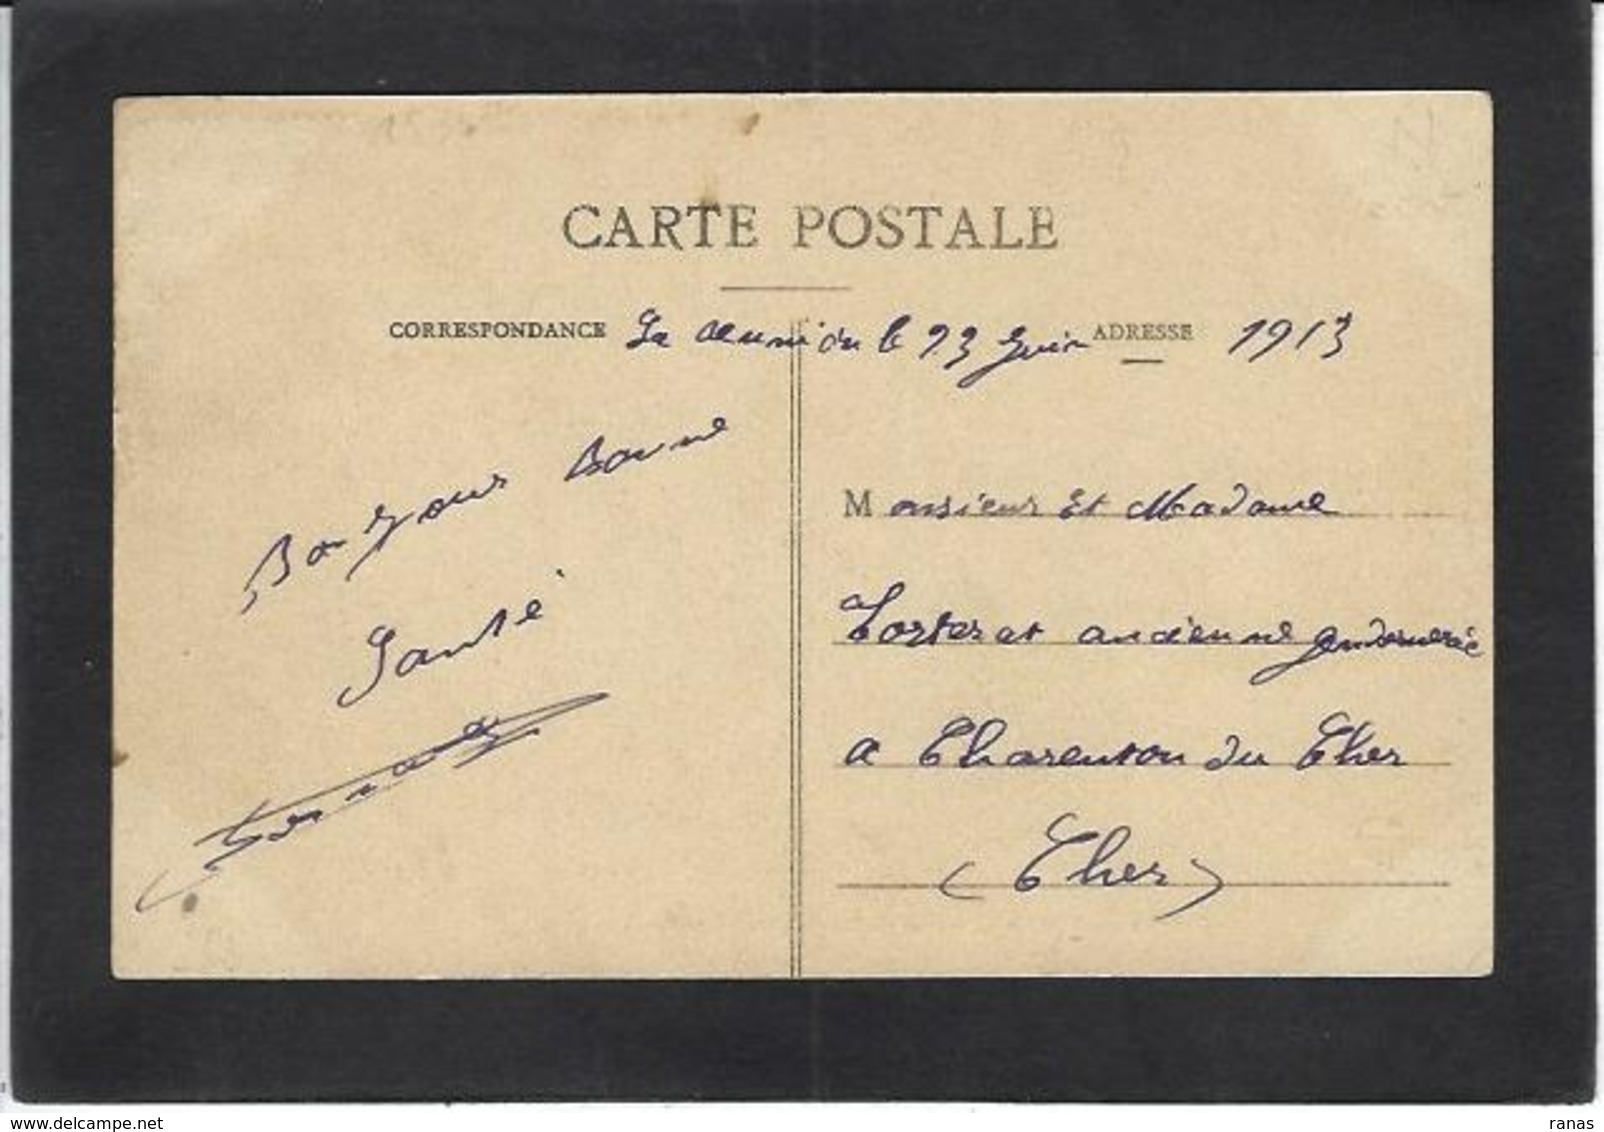 CARTE POSTALE
CORRESPONDANCE La Réunion le 23 Juin ADRESSE 1913
Bonjour Bonne
Santé
Monsieur Et Madame
ancienne gendarmerie
a Charenton du Cher
(Cher)
www.delcampe.net
ranas